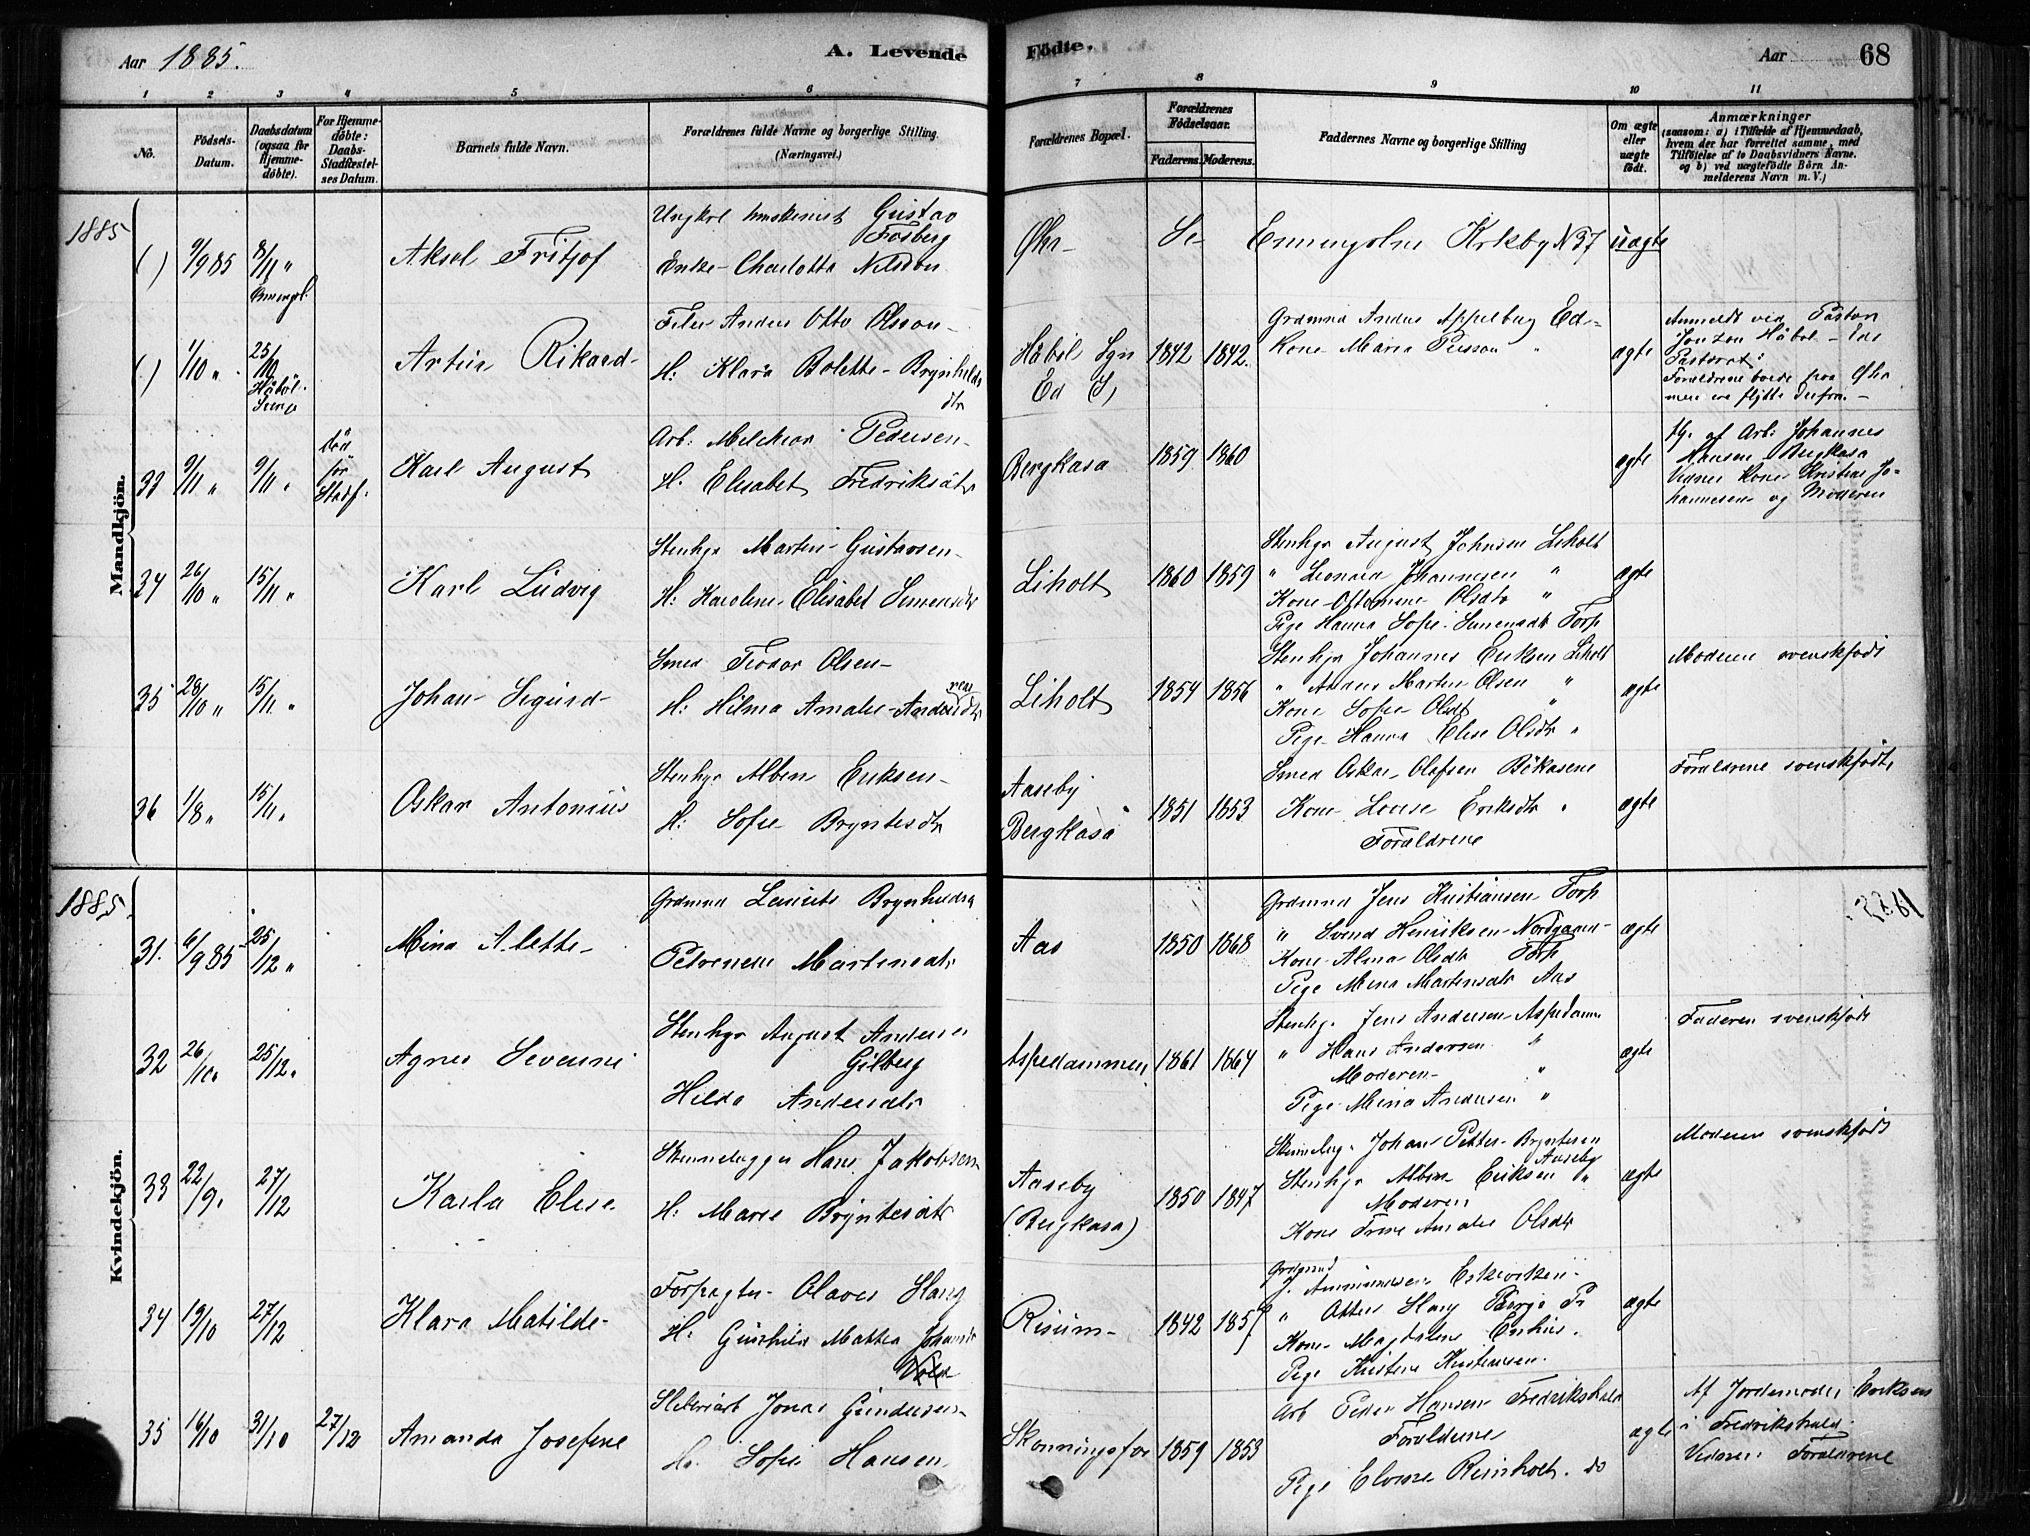 Aar 1885.
A. Levende
Födte.
Aar
68
1 2 3 4 5 6 7 8 9 10 11
No.
Födsels-
Datum.
Daabsdatum
(ogsaa for
Hjemme-
döbte).
For Hjemme-
döbte:
Daabs-
Stadfæstel-
ses Datum.
Barnets fulde Navn.
Forældrenes fulde Navne og borgerlige Stilling.
(Næringsvei.)
Forældrenes Bopæl.
Forældrenes
Födselsaar.
Faderens. Moderens.
Faddernes Navne og borgerlige Stilling
Om ægte
eller
uægte
födt.
Anmærkninger
(saasom: a) i Tilfælde af Hjemmedaab,
hvem der har forrettet samme, med
Tilföielse af to Daabsvidners Navne.
og b) ved uægtefödte Börn An-
melderens Navn m. V.)
Mandkjön.
1885
( ) 9/9 85 8/11 "
Aksel Fritjof
Ungkarl Gustav
Fosberg
Enke Charlotta Nilsdon
Öhr
Enningdalens Kirkeby N 37
uægte
( ) 1/10 " 25/10
Håböl
Artur Rikard
Anders Otto Olsson
H: Klara Bolette Brynhilds
dtr
Håböl Sgn
Ed
1842 1842.
Grdmnd Anders Appelberg Ed
Kone Maria Persson "
ægte
Anmeldt ved Pastor
Jonzon Håböl - Eds
Pastorat.
Forældrene boede paa Öhr
men ere flyttede derfra.
33 9/11 " 9/11 "
död
för
Stadf.
Karl August
Arb: Melchior Pedersen
H. Elisabet Fredriksdtr
Bergkasa
1859 1860
ægte
Hj. af Arb: Johannes
Hansen Bergkasa
Vidner Kone Kristine Jo-
hannesen og Moderen
34 26/10 " 15/11 "
Karl Ludvig
Stenhgr Martin Gustavsen
H: Karoline Elisabet Simensdtr
Liholt
1860 1859
Stenhgr August Johnsen Liholt
" Leonard Johannesen "
Kone Ottomine Olsdtr "
Pige Hanna Sofie Simensdtr Torp
ægte
35 28/10 " 15/11 "
Johan Sigurd
Smed Teodor Olsen
H: Hilma Amalie Andersdtr
Liholt
1854 1856
Stenhgr Johannes Eriksen Liholt
" Anders Martin Olsen "
Kone Sofie Olsdtr "
Pige Hanna Elise Olsdtr "
ægte
Moderen svenskfödt
36 1/8 " 15/11 "
Oskar Antonius
Stenhgr Albin Eriksen
H: Sofie Bryntesdtr
Aaseby
Bergkasa
1851 1853
Smed Oskar Olafsen Bökasene
Kone Lovise Eriksdtr "
Forældrene
ægte
Forældrene svenskfödte
Kvindekjön.
1885.
31. 6/9 85 25/12 "
Mina Alette
Grdmnd Brynhildsen
Petrenem Martinsdtr
Aas
1850 1868
Grdmnd Jens Kristiansen Torp
" Svend Henriksen Nordgaard
Kone Alma Olsdtr Torp
Pige Mina Martinsdtr Aas
ægte
32 26/10 " 25/12 "
Agnes Severine
Stenhgr August Andersen
Gilberg
Hilda Andersdtr
Aspedammen
1861 1864
Stenhgr Jens Andersen Aspedammen
" Hans Andersen "
Moderen "
Pige Mina Andersen "
ægte
Faderen svenskfödt
33 22/9 " 27/12
Karla Elise
Stennelægger Hans Jakobsen
H: Marie Bryntesdtr
Aaseby
(Bergkasa)
1850 1847
Stenlæg. Johan Petter Bryntesen
Aaseby
Stenhgr Albin Eriksen "
Moderen
Kone Trine Amalie Olsdtr
ægte
Moderen svenskfödt
34 19/10 27/12
Klara Matilde
Forpagter Olaves Haug
H: Gunhild Mattea
Risum
1842 1857
Grdmnd
" Haug Berge Pr
Kone Magdalene
Pige Kristine Kristensen
ægte
35 16/10 31/10 27/12
Amanda Josefine
Jonas Gundersen
H. Sofie Hansen
Skonningsfos
1859 1853
Arb Peder Hansen Fredrikshald
Forældrene
Pige Elvine Reinholt do
ægte
Af Jordemoder Eriksen
i Fredrikshald.
Vidner: Forældrene